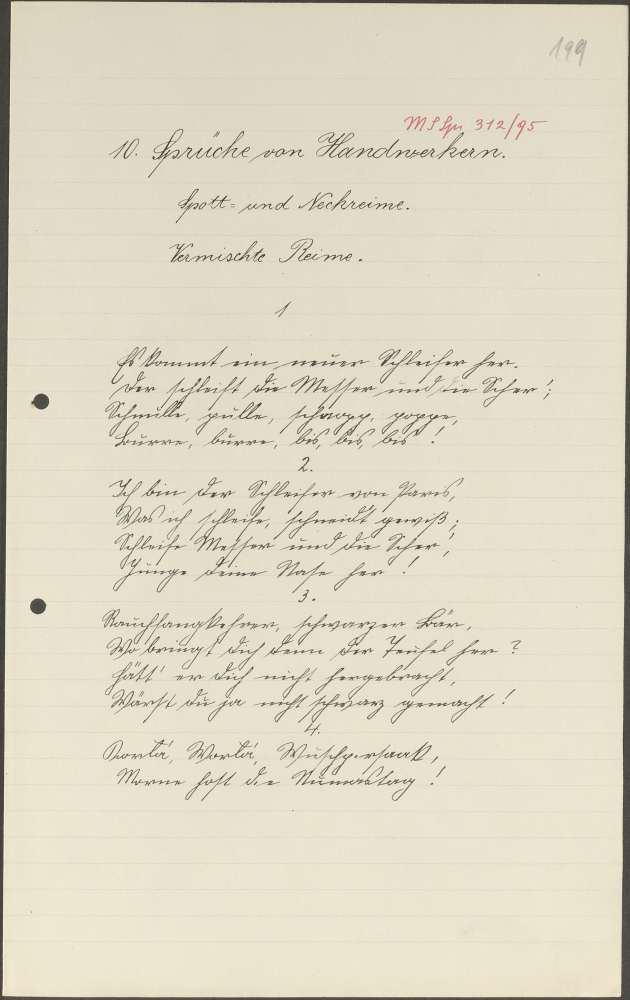 199
10. Sprüche von Handwerkern.
Spott- und Neckreime.
Vermischte Reime.
1
Es kommt ein neuer Schleifer her.
Der schleift die Messer und die Scher';
bis, bis, bis!
2.
Ich bin der Schleifer von Paris,
Was ich schleife, schneidt gewiß;
Schleife Messer und die Scher',
Junge deine Nase her!
3.
Rauchfangkehrer, schwarzer Bär,
Wo bringt dich denn der Teufel her?
Hätt' er dich nicht hergebracht,
Wärst du ja nicht schwarz gemacht!
4.
Morne host die